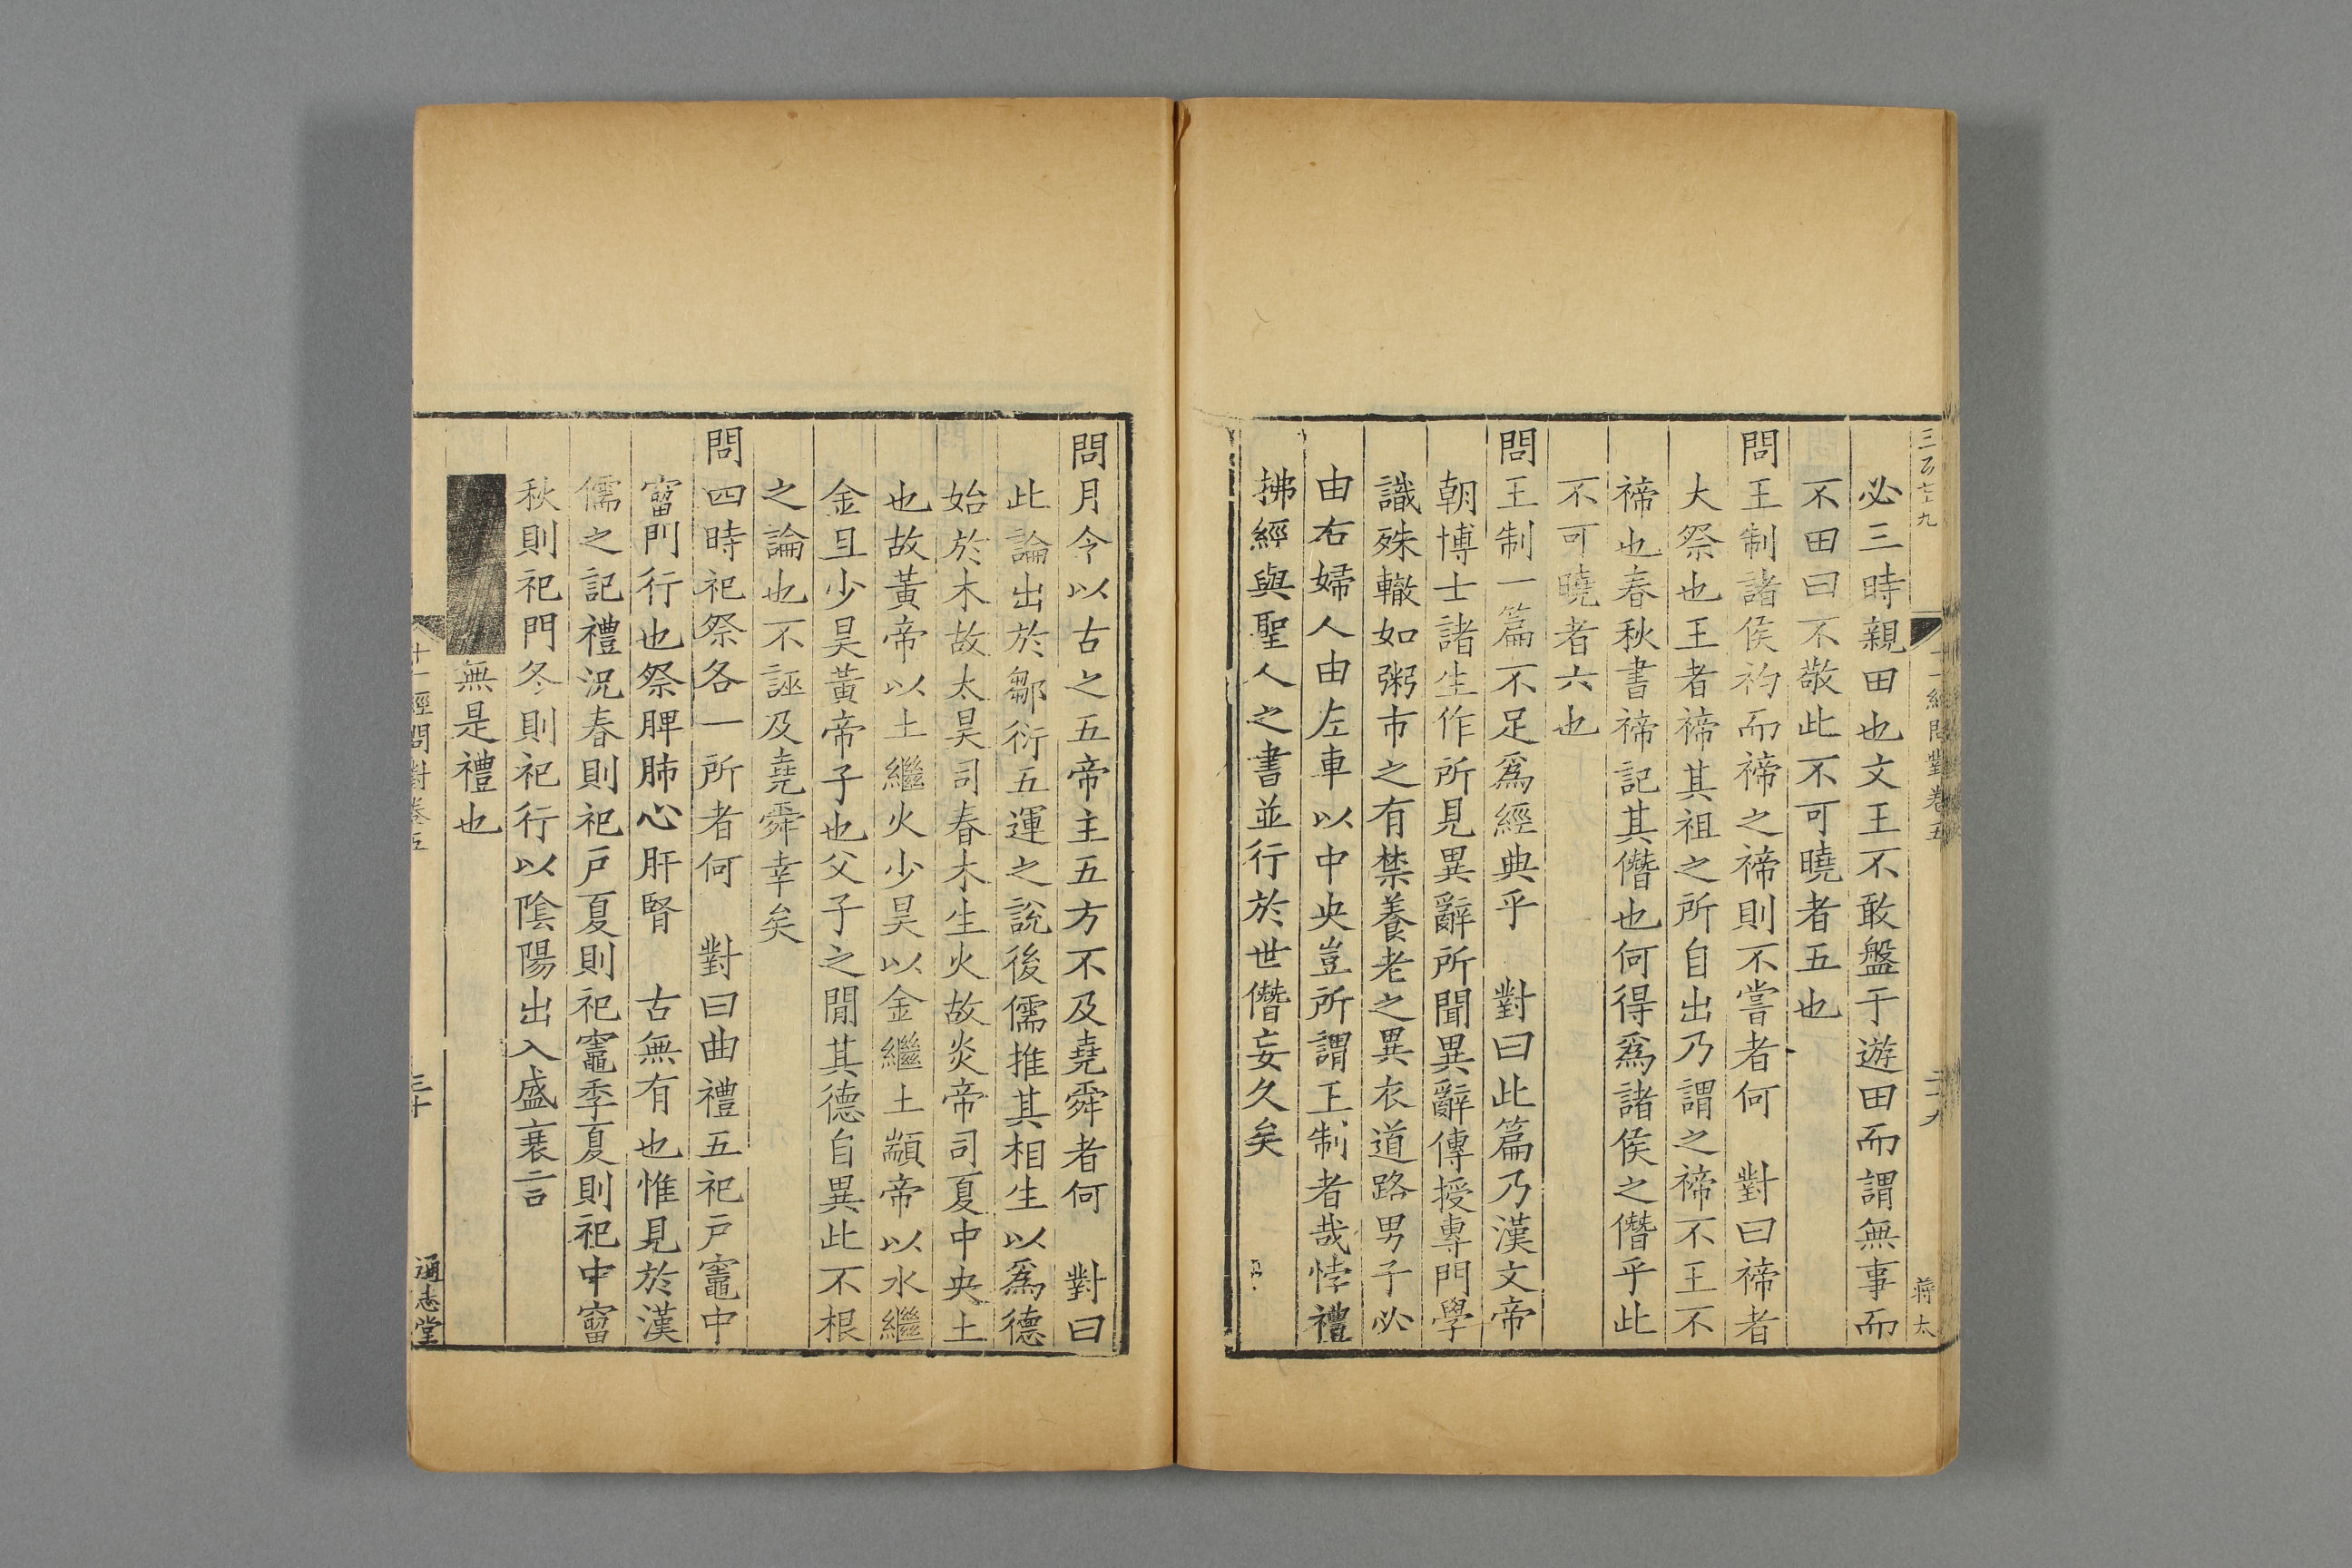 必三時親田也文王不敢盤于遊田而謂無事而
不田曰不敬此不可曉者五也
問王制諸侯礿而禘之禘則不嘗者何　對曰禘者
大祭也王者禘其祖之所自出乃謂之禘不王不
禘也春秋書禘記其僭也何得爲諸侯之僭乎此
不可曉者六也
問王制一篇不足爲經典乎　對曰此篇乃漢文帝
朝博士諸生作所見異辭所聞異辭傳授專門學
識殊轍如粥市之有禁養老之異衣道路男子必
由右婦人由左車以中央豈所謂王制者哉悖禮
拂經與聖人之書並行於世僭妄久矣
問月令以古之五帝主五方不及堯舜者何　對曰
此論出於鄒衍五運之說後儒推其相生以爲德
始於木故太昊司春木生火故炎帝司夏中央土
也故黃帝以土繼火少昊以金繼土顓帝以水繼
金且少昊黃帝子也父子之閒其德自異此不根
之論也不誣及堯舜幸矣
問四時祀祭各一所者何　對曰曲禮五祀戶竈中
霤門行也祭脾肺心肝腎　古無有也惟見於漢
儒之記禮況春則祀戶夏則祀竈季夏則祀中霤
秋則祀門冬則祀行以陰陽出入盛衰言
無是禮也
十一經問對卷五
三十
通志堂
三百七十九
十一經問對卷五
二十九
蔣太